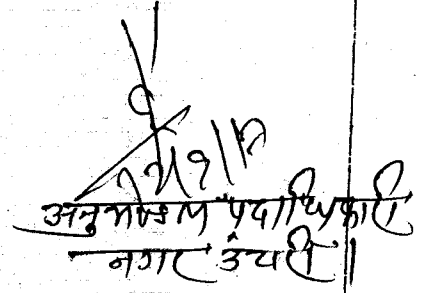 अनुमंडल पदाधिकारी
नगर उंटारी।